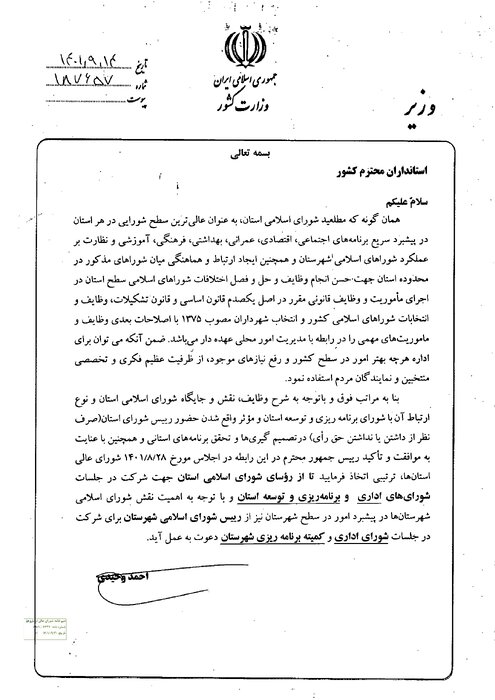 جمهوری اسلامی ایران
وزارت کشور
وزیر
تاریخ ۱۴۰۱,۹,۱۴
شماره ۱۸۷۶۵۷
پیوست
بسمه تعالی
استانداران محترم کشور
سلام علیکم
همان گونه که مطلعید شورای اسلامی استان، به عنوان عالی‌ترین سطح شورایی در هر استان
در پیشبرد سریع برنامه‌های اجتماعی، اقتصادی، عمرانی، بهداشتی، فرهنگی، آموزشی و نظارت بر
عملکرد شوراهای اسلامی شهرستان و همچنین ایجاد ارتباط و هماهنگی میان شوراهای مذکور در
محدوده استان جهت حسن انجام وظایف و حل و فصل اختلافات شوراهای اسلامی سطح استان در
اجرای مأموریت و وظایف قانونی مقرر در اصل یکصدم قانون اساسی و قانون تشکیلات، وظایف و
انتخابات شوراهای اسلامی کشور و انتخاب شهرداران مصوب ۱۳۷۵ با اصلاحات بعدی وظایف و
ماموریت‌های مهمی را در رابطه با مدیریت امور محلی عهده دار می‌باشد. ضمن آنکه می توان برای
اداره هرچه بهتر امور در سطح کشور و رفع نیازهای موجود، از ظرفیت عظیم فکری و تخصصی
منتخبین و نمایندگان مردم استفاده نمود.
بنا به مراتب فوق و باتوجه به شرح وظایف، نقش و جایگاه شورای اسلامی استان و نوع
ارتباط آن با شورای برنامه ریزی و توسعه استان و مؤثر واقع شدن حضور رییس شورای استان(صرف
نظر از داشتن یا نداشتن حق رأی) درتصمیم گیری‌ها و تحقق برنامه‌های استانی و همچنین با عنایت
به موافقت و تأکید رییس جمهور محترم در این رابطه در اجلاس مورخ ۱۴۰۱/۸/۲۸ شورای عالی
استان‌ها، ترتیبی اتخاذ فرمایید تا از رؤسای شورای اسلامی استان جهت شرکت در جلسات
شورای‌های اداری و برنامه‌ریزی و توسعه استان و با توجه به اهمیت نقش شورای اسلامی
شهرستان‌ها در پیشبرد امور در سطح شهرستان نیز از رییس شورای اسلامی شهرستان برای شرکت
در جلسات شورای اداری و کمیته برنامه ریزی شهرستان دعوت به عمل آید.
احمد وحیدی